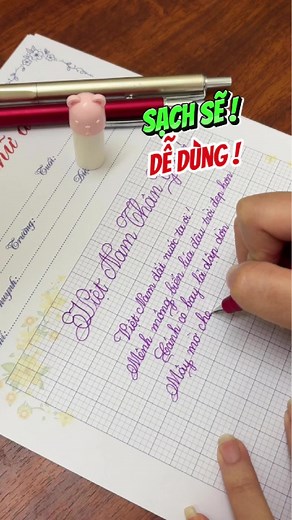 SẠCH SẼ !
DỄ DÙNG !
Tuổi:
Trường:
Việt Nam Thân
Việt Nam đất nước ta ơi !
Mênh mông biển lúa đâu trời đẹp hơn
Cánh cò bay lả dập dờn
Mây mờ che